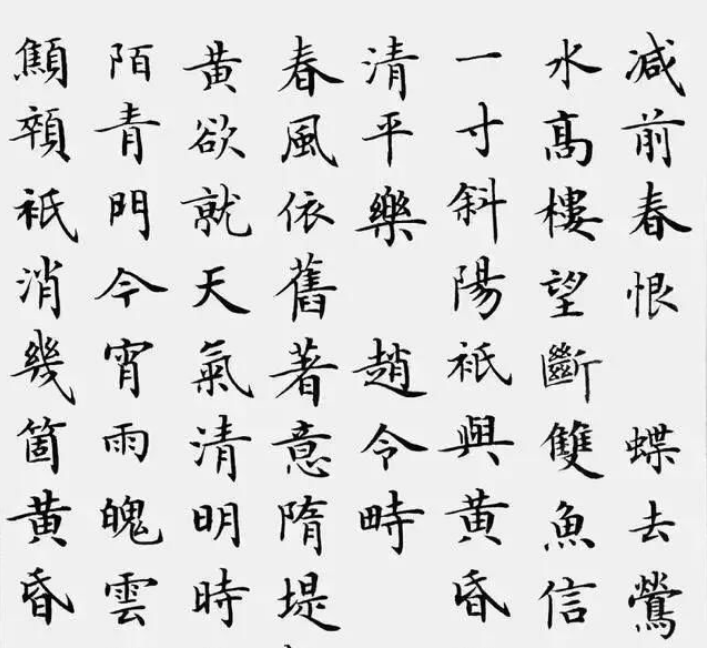 减前春恨 蝶去鶯
水高樓望斷雙魚信
一寸斜陽祇與黄昏
清平樂 趙令畤
春風依舊著意隋堤
黄欲就天氣清明時
陌青門今宵雨魄雲
顦顇祇消幾箇黄昏